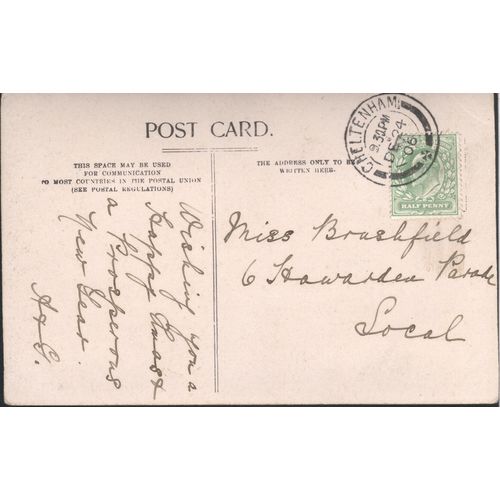 POST CARD.
THIS SPACE MAY BE USED
FOR COMMUNICATION
TO MOST COUNTRIES IN THE POSTAL UNION
(SEE POSTAL REGULATIONS)
THE ADDRESS ONLY TO BE
WRITTEN HERE.
CHELTENHAM
9.30PM
DE 24
06
HALF PENNY
Wishing you a
Happy Xmas &
a Prosperous
New Year
A & G.
Miss Brashfield
6 Hawarden Parade
Local